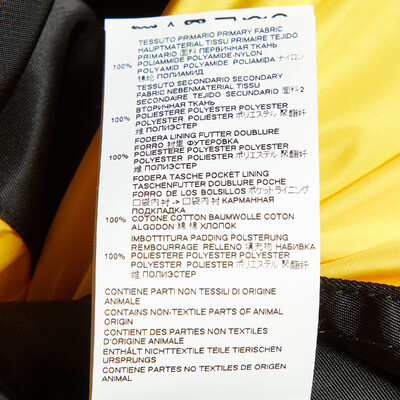 TESSUTO PRIMARIO PRIMARY FABRIC
HAUPTMATERIAL TISSU PRIMAIRE TEJIDO
PRIMARIO 面料 ПЕРВИЧНАЯ ТКАНЬ
100% POLIAMMIDE POLYAMIDE-NYLON
POLYAMID POLYAMIDE POLIAMIDA ナイロン
锦纶 ПОЛИАМИД
TESSUTO SECONDARIO SECONDARY
FABRIC NEBENMATERIAL TISSU
SECONDAIRE TEJIDO SECUNDARIO 面料2
ВТОРИЧНАЯ ТКАНЬ
100% POLIESTERE POLYESTER POLYESTER
POLYESTER POLIÉSTER ポリエステル 聚酯纤
维 ПОЛИЭСТЕР
FODERA LINING FUTTER DOUBLURE
FORRO 衬里 ФУТЕРОВКА
100% POLIESTERE POLYESTER POLYESTER
POLYESTER POLIÉSTER ポリエステル 聚酯纤
维 ПОЛИЭСТЕР
FODERA TASCHE POCKET LINING
TASCHENFUTTER DOUBLURE POCHE
FORRO DE LOS BOLSILLOS ポケットライニング
口袋内衬 -> 口袋内衬 КАРМАННАЯ
ПОДКЛАДКА
100% COTONE COTTON BAUMWOLLE COTON
ALGODON 綿 棉 ХЛОПОК
IMBOTTITURA PADDING POLSTERUNG
REMBOURRAGE RELLENO 填充物 НАБИВКА
100% POLIESTERE POLYESTER POLYESTER
POLYESTER POLIÉSTER ポリエステル 聚酯纤
维 ПОЛИЭСТЕР
CONTIENE PARTI NON TESSILI DI ORIGINE
ANIMALE
CONTAINS NON-TEXTILE PARTS OF ANIMAL
ORIGIN
CONTIENT DES PARTIES NON TEXTILES
D'ORIGINE ANIMALE
ENTHÄLT NICHTTEXTILE TEILE TIERISCHEN
URSPRUNGS
CONTIENE PARTES NO TEXTILES DE ORIGEN
ANIMAL